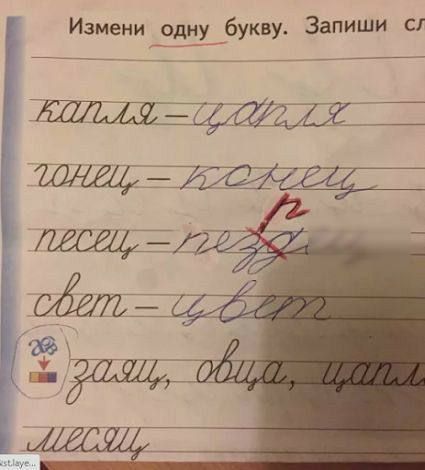 Измени одну букву. Запиши сл
капля – цапля
гонец – конец
песец – пезд
свет – цвет
заяц, овца, цапл
месяц